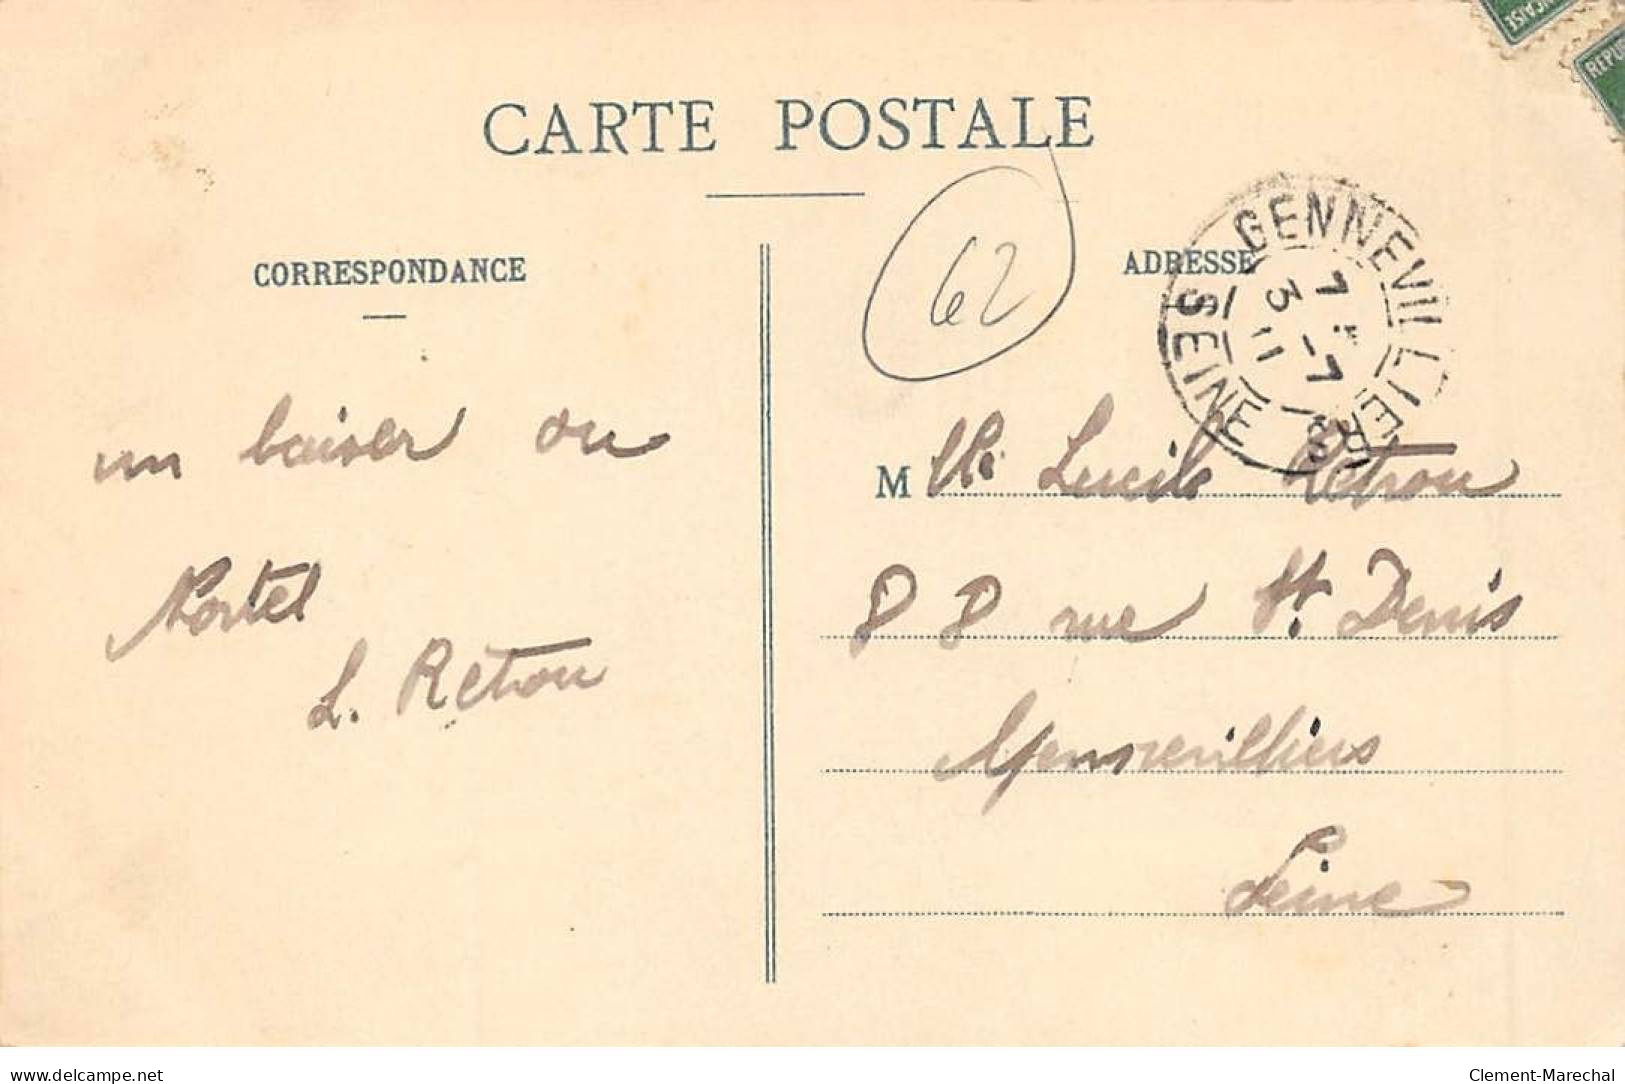 CARTE POSTALE
CORRESPONDANCE
un baiser du
Portel
L. Retrou
62
ADRESSE
GENNEVILLIERS
SEINE
7
3 - 7
11
FRANÇAISE
REPU
M lle Lucile Retrou
88 rue St. Denis
Gennevilliers
Seine
www.delcampe.net
Clement-Marechal